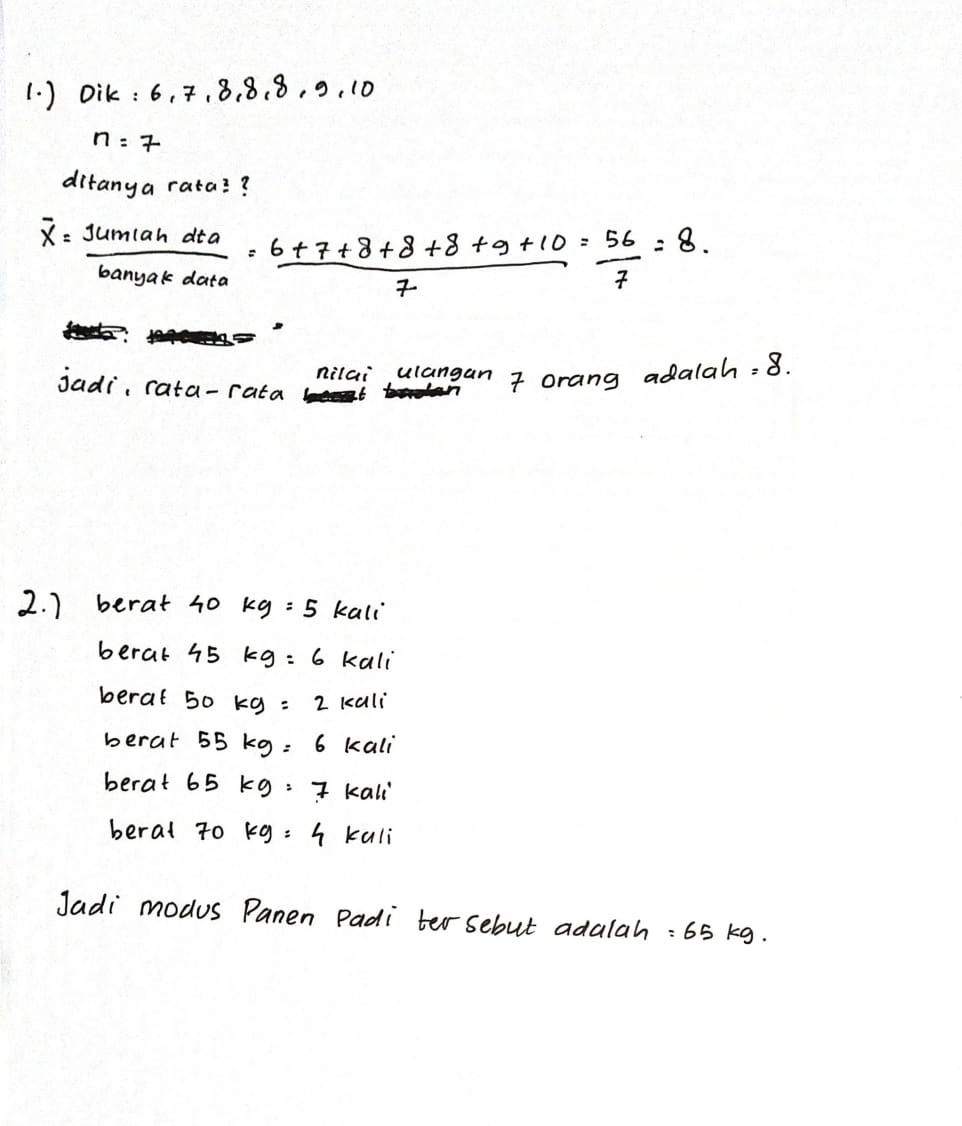 1.) Dik : 6, 7, 8, 8, 8, 9, 10
n = 7
ditanya rata² ?
x̄ = Jumlah dta / banyak data = 6 + 7 + 8 + 8 + 8 + 9 + 10 / 7 = 56 / 7 = 8.
jadi, rata - rata nilai ulangan 7 orang adalah = 8.
2.) berat 40 kg = 5 kali
berat 45 kg = 6 kali
berat 50 kg = 2 kali
berat 55 kg = 6 kali
berat 65 kg = 7 kali
berat 70 kg = 4 kali
Jadi modus Panen Padi tersebut adalah = 65 kg.